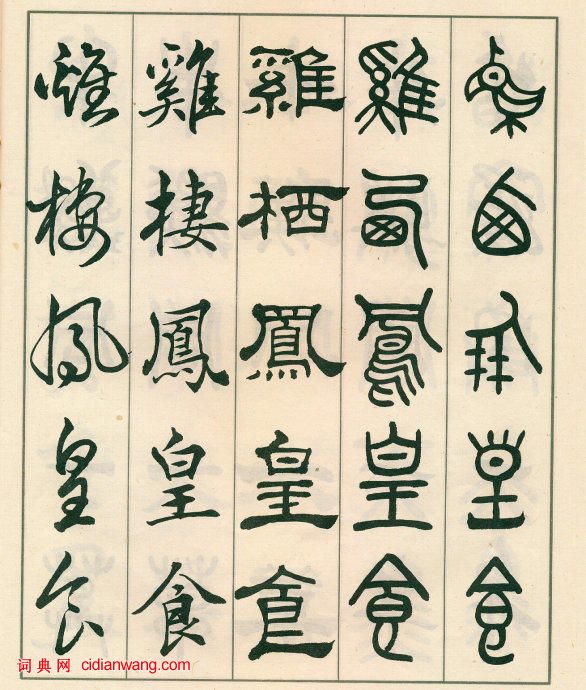 雞西鳳皇食
雞西鳳皇食
雞栖鳳皇食
雞棲鳳皇食
雞棲鳳皇食
词典网 cidianwang.com